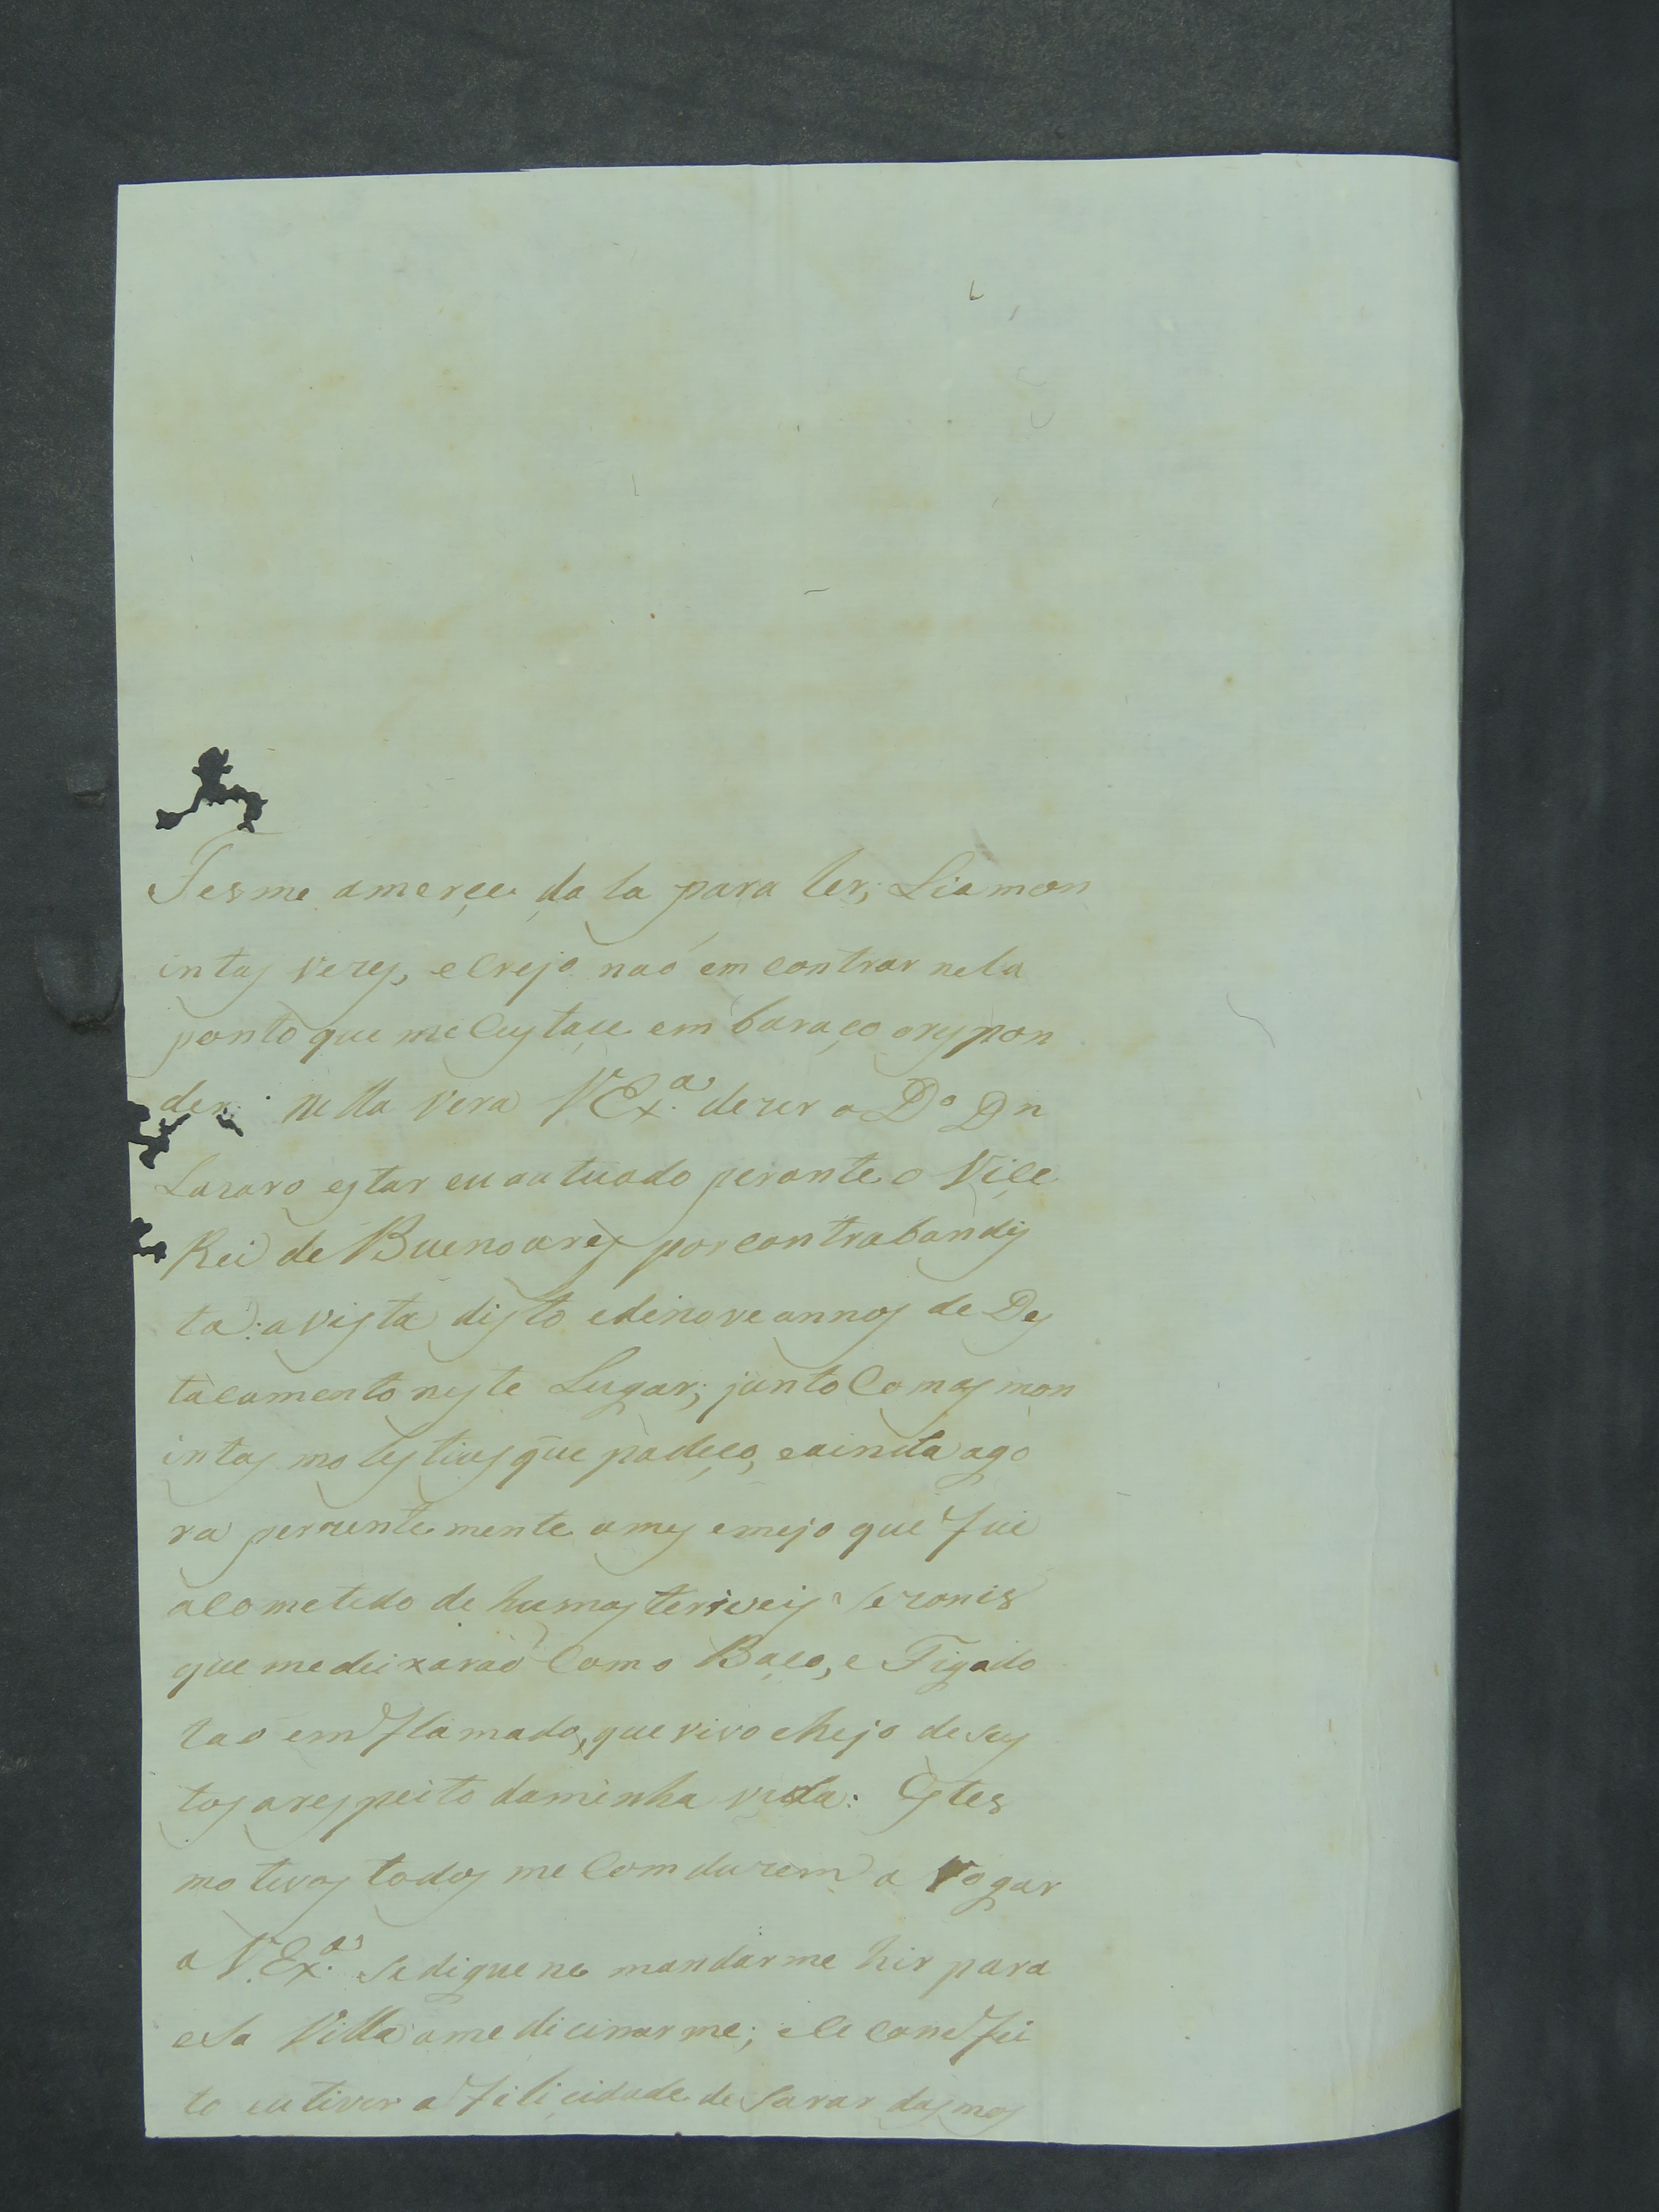 Fesme amerçe da la para ler; Lia mon
intas vezes, e Crejo naó em contrar nela
ponto que me Custaçe em baraço o respon
der: nella vera V Ex.ª dezer o Dº Dn
Lazaro estar eu autuado perante o Viçe
Rei de Buenoares por contrabandis
ta: a vista disto e dinove annos de Des
tacamento neste Lugar; junto Comas mon
intas molestias que padeço, e ainda ago
ra perzente mente a mes e mejo que fui
acometido de humas teriveis Sezonis
que me deixaraó Com o Baço, e Figado
taó emflamado, que vivo chejo de sus
tos a respeito da minha vida: Estes
motivos todos me Comduzem a Rogar
a V. Ex.ª se digue ne mandar me hir para
esa Villa a me dicinar me; e Ce com efei
to eu tiver a filicidade de Sarar das mos